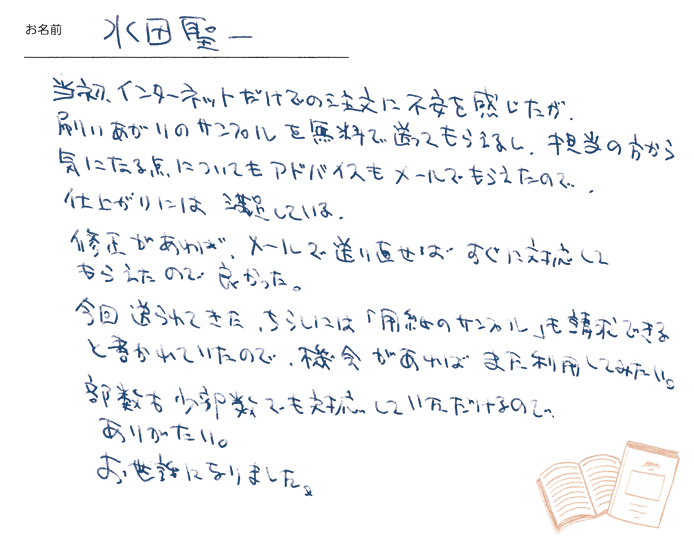 お名前 水田聖一
当初、インターネットだけでの注文に不安を感じたが、
刷りあがりのサンプルを無料で送ってもらえるし、担当の方から
気になる点についてもアドバイスもメールでもらえたので、
仕上がりには満足している。
修正があれば、メールで送り直せばすぐに対応して
もらえたので良かった。
今回送られてきた、ちらしには「用紙のサンプル」も請求できる
と書かれていたので、機会があればまた利用してみたい。
部数も少部数でも対応していただけるので、
ありがたい。
お世話になりました。